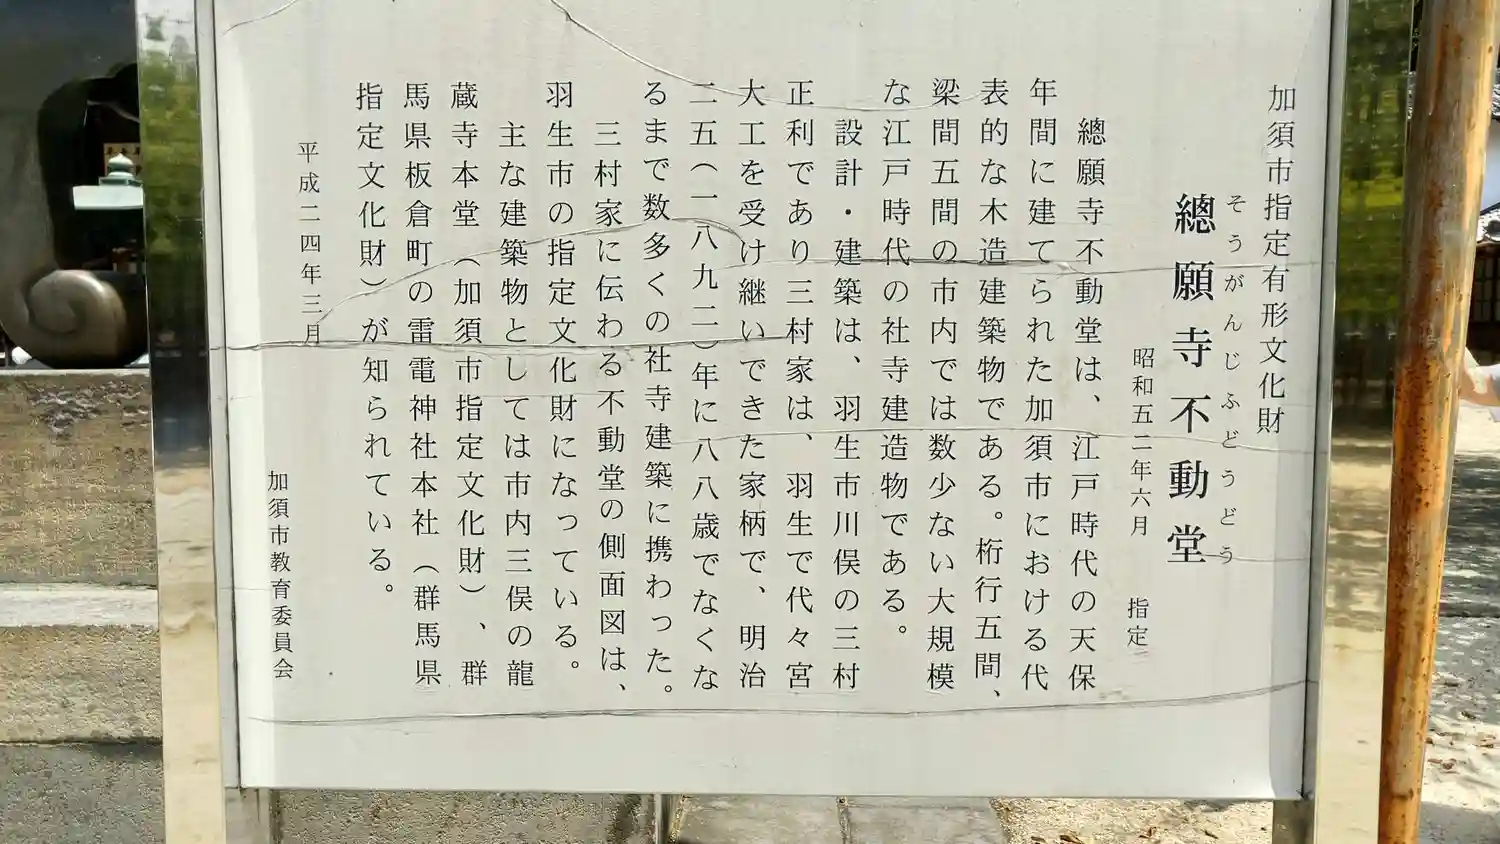 加須市指定有形文化財
そうがんじふどうどう
總願寺不動堂
昭和五二年六月 指定
總願寺不動堂は、江戸時代の天保
年間に建てられた加須市における代
表的な木造建築物である。桁行五間、
梁間五間の市内では数少ない大規模
な江戸時代の社寺建造物である。
設計・建築は、羽生市川俣の三村
正利であり三村家は、羽生で代々宮
大工を受け継いできた家柄で、明治
二五(一八九二)年に八八歳でなくな
るまで数多くの社寺建築に携わった。
三村家に伝わる不動堂の側面図は、
羽生市の指定文化財になっている。
主な建築物としては市内三俣の龍
蔵寺本堂(加須市指定文化財)、群
馬県板倉町の雷電神社本社(群馬県
指定文化財)が知られている。
平成二四年三月
加須市教育委員会